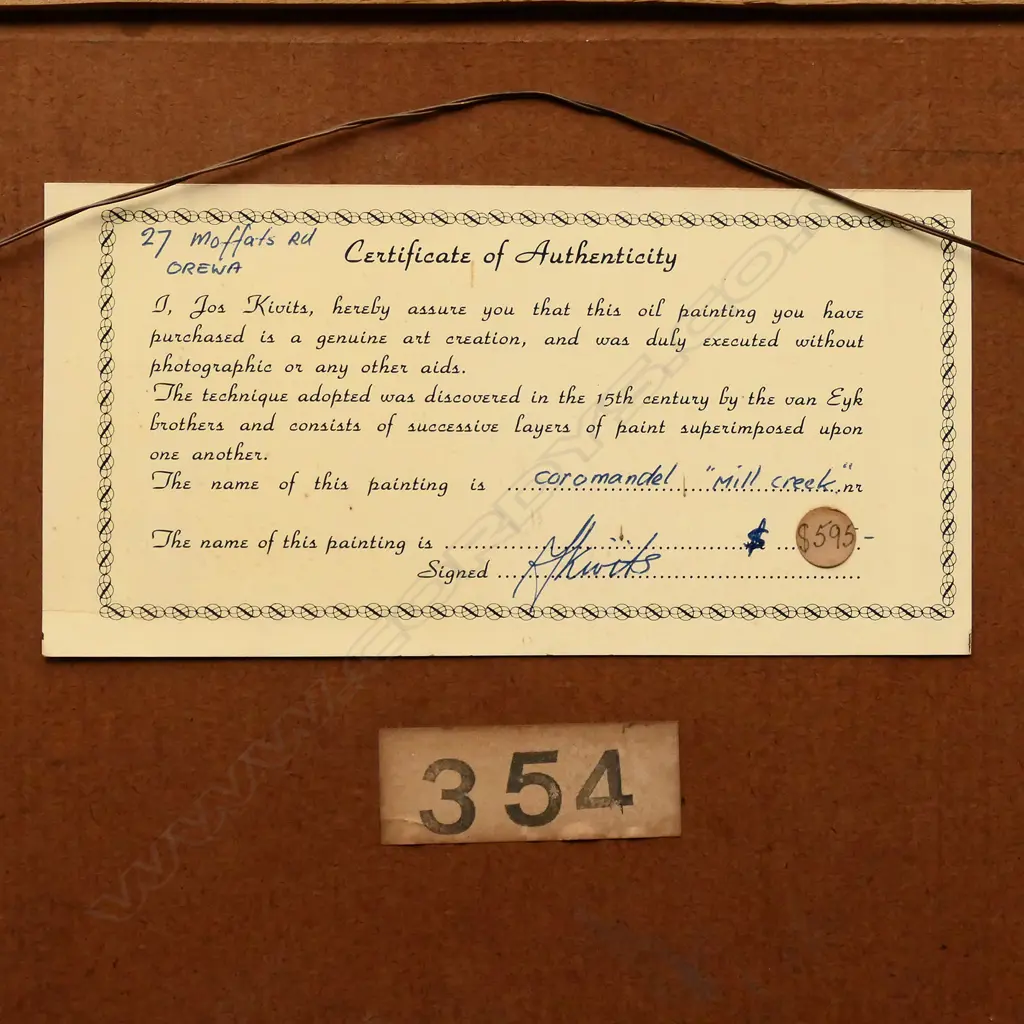 27 Moffats Rd
OREWA
Certificate of Authenticity
I, Jos Kivits, hereby assure you that this oil painting you have
purchased is a genuine art creation, and was duly executed without
photographic or any other aids.
The technique adopted was discovered in the 15th century by the van Eyk
brothers and consists of successive layers of paint superimposed upon
one another.
The name of this painting is ... coromandel "Mill creek" nr
The name of this painting is ... $ ... $595-
Signed ... JKivits ...
354